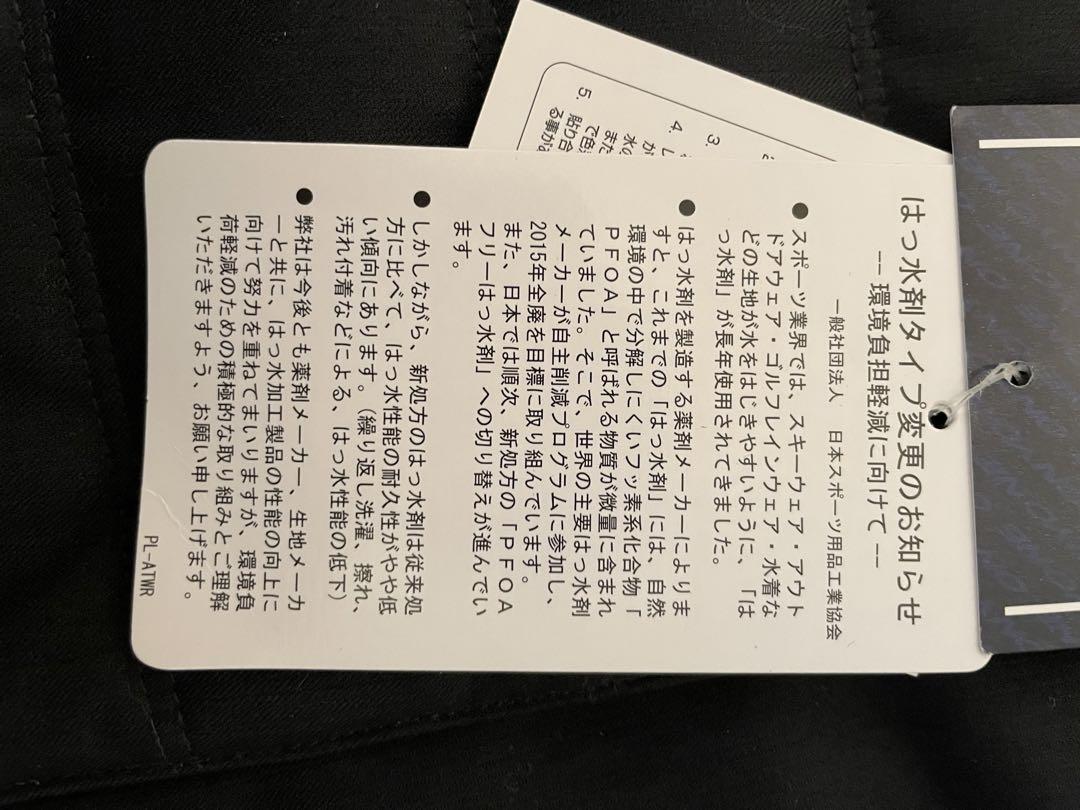 はっ水剤タイプ変更のお知らせ
-- 環境負担軽減に向けて --
一般社団法人 日本スポーツ用品工業協会
● スポーツ業界では、スキーウェア・アウト
ドアウェア・ゴルフレインウェア・水着な
どの生地が水をはじきやすいように、「は
っ水剤」が長年使用されてきました。
● はっ水剤を製造する薬剤メーカーによりま
すと、これまでの「はっ水剤」には、自然
環境の中で分解しにくいフッ素系化合物「
ＰＦＯＡ」と呼ばれる物質が微量に含まれ
ていました。そこで、世界の主要はっ水剤
メーカーが自主削減プログラムに参加し、
2015年全廃を目標に取り組んでいます。
また、日本では順次、新処方の「ＰＦＯＡ
フリーはっ水剤」への切り替えが進んでい
ます。
● しかしながら、新処方のはっ水剤は従来処
方に比べて、はっ水性能の耐久性がやや低
い傾向にあります。（繰り返し洗濯、擦れ、
汚れ付着などによる、はっ水性能の低下）
● 弊社は今後とも薬剤メーカー、生地メーカ
ーと共に、はっ水加工製品の性能の向上に
向けて努力を重ねてまいりますが、環境負
荷軽減のための積極的な取り組みとご理解
いただきますよう、お願い申し上げます。
PL-ATWR
3.
4. し
が
水の
また
で色
5. 貼り合
る事が